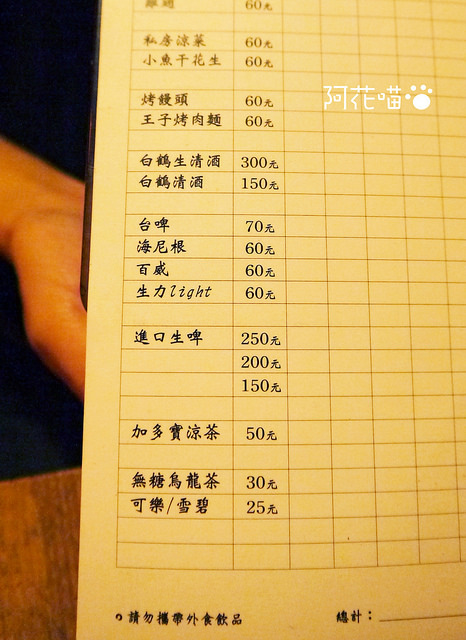 雞翅 60元
私房涼菜 60元
小魚干花生 60元
烤饅頭 60元
王子烤肉麵 60元
白鶴生清酒 300元
白鶴清酒 150元
台啤 70元
海尼根 60元
百威 60元
生力light 60元
進口生啤 250元
200元
150元
加多寶涼茶 50元
無糖烏龍茶 30元
可樂/雪碧 25元
請勿攜帶外食飲品 總計:
阿花喵